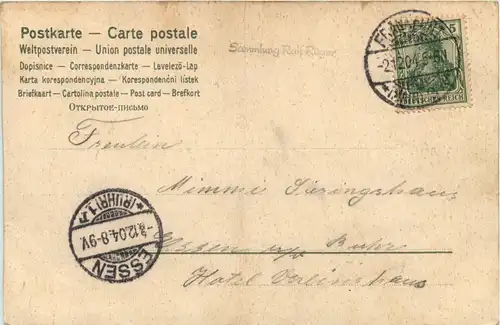 Postkarte — Carte postale
Weltpostverein — Union postale universelle
Dopisnice — Correspondenzkarte — Levelező-Lap
Karta korespondencyjna — Korespondenční lístek
Briefkaart — Cartolina postale — Post card — Brefkort
Открытое письмо
Sammlung Rolf Rüger
5
2.12.04
REICH
Fräulein
Mimmie Sieringshaus
Essen a/d Ruhr
Hotel Vereinshaus
(RUHR) 1
-3.12.04.8-9V.
ESSEN